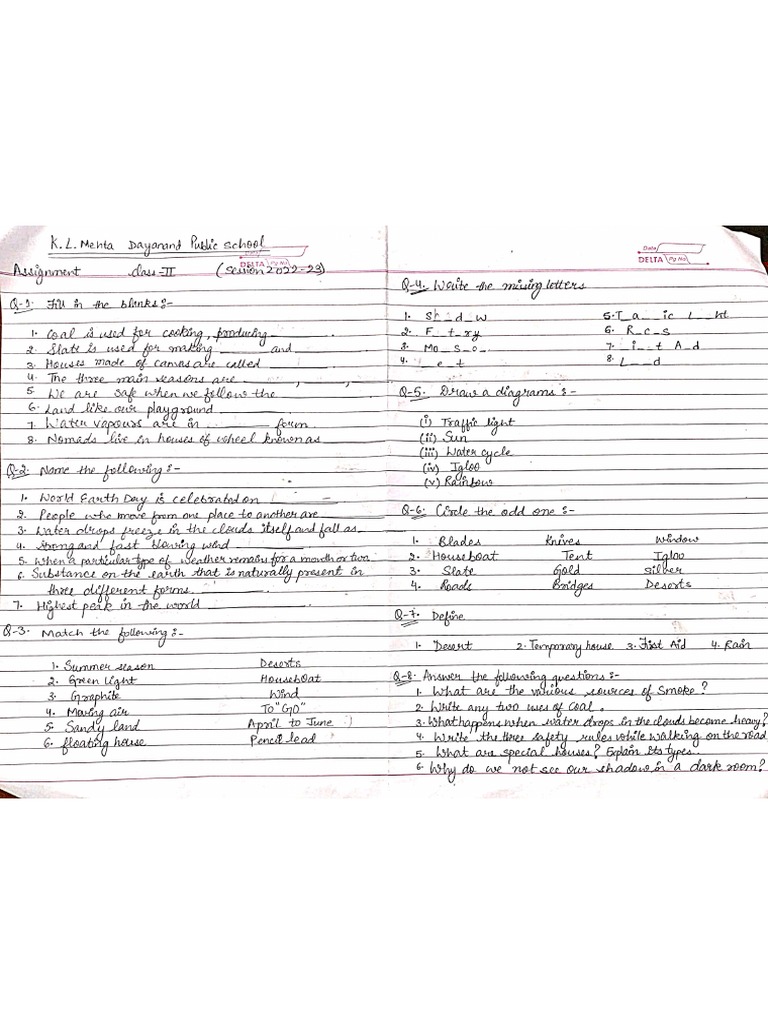 K. L. Mehta Dayanand Public School
Date
DELTA Pg No
Assignment Class-II (Session 2022-23)
Q-1. Fill in the blanks:-
1. Coal is used for cooking, producing ________
2. Slate is used for making ________ and ________
3. Houses made of canvas are called ________
4. The three main seasons are ________, ________, ________
5 We are safe when we follow the ________
6. Land like our playground ________
7. Water vapours are in ________ form
8. Nomads live in houses of wheel known as ________
Q-2. Name the following:-
1. World Earth Day is celebrated on ________
2. People who move from one place to another are ________
3. Water drops freeze in the clouds itself and fall as ________
4. Strong and fast blowing wind ________
5. When a particular type of weather remains for a month or two.
6. Substance on the earth that is naturally present in
three different forms. ________
7. Highest peak in the world ________
Q-3. Match the following:-
1. Summer season Deserts
2. Green light Houseboat
3. Graphite Wind
4. Moving air To "GO"
5. Sandy land April to June
6. floating house Pencil lead
Date
DELTA Pg No
Q-4. Write the missing letters
1. Sh_d_w 5. T_a__ic L__ht
2. F_t_ry 6. R_c_s
3. Mo_s_o_ 7. _i_t A_d
4. _e_t 8. L__d
Q-5. Draw a diagrams:-
(i) Traffic light
(ii) Sun
(iii) Water cycle
(iv) Igloo
(v) Rainbow
Q-6. Circle the odd one:-
1. Blades Knives Window
2. Houseboat Tent Igloo
3. Slate Gold Silver
4. Roads Bridges Deserts
Q-7. Define
1. Desert 2. Temporary house 3. First Aid 4. Rain
Q-8. Answer the following questions:-
1. What are the various sources of Smoke?
2. Write any two uses of Coal.
3. What happens when water drops in the clouds become heavy?
4. Write the three safety rules while walking on the road
5. What are special houses? Explain its types.
6. Why do we not see our shadow in a dark room?